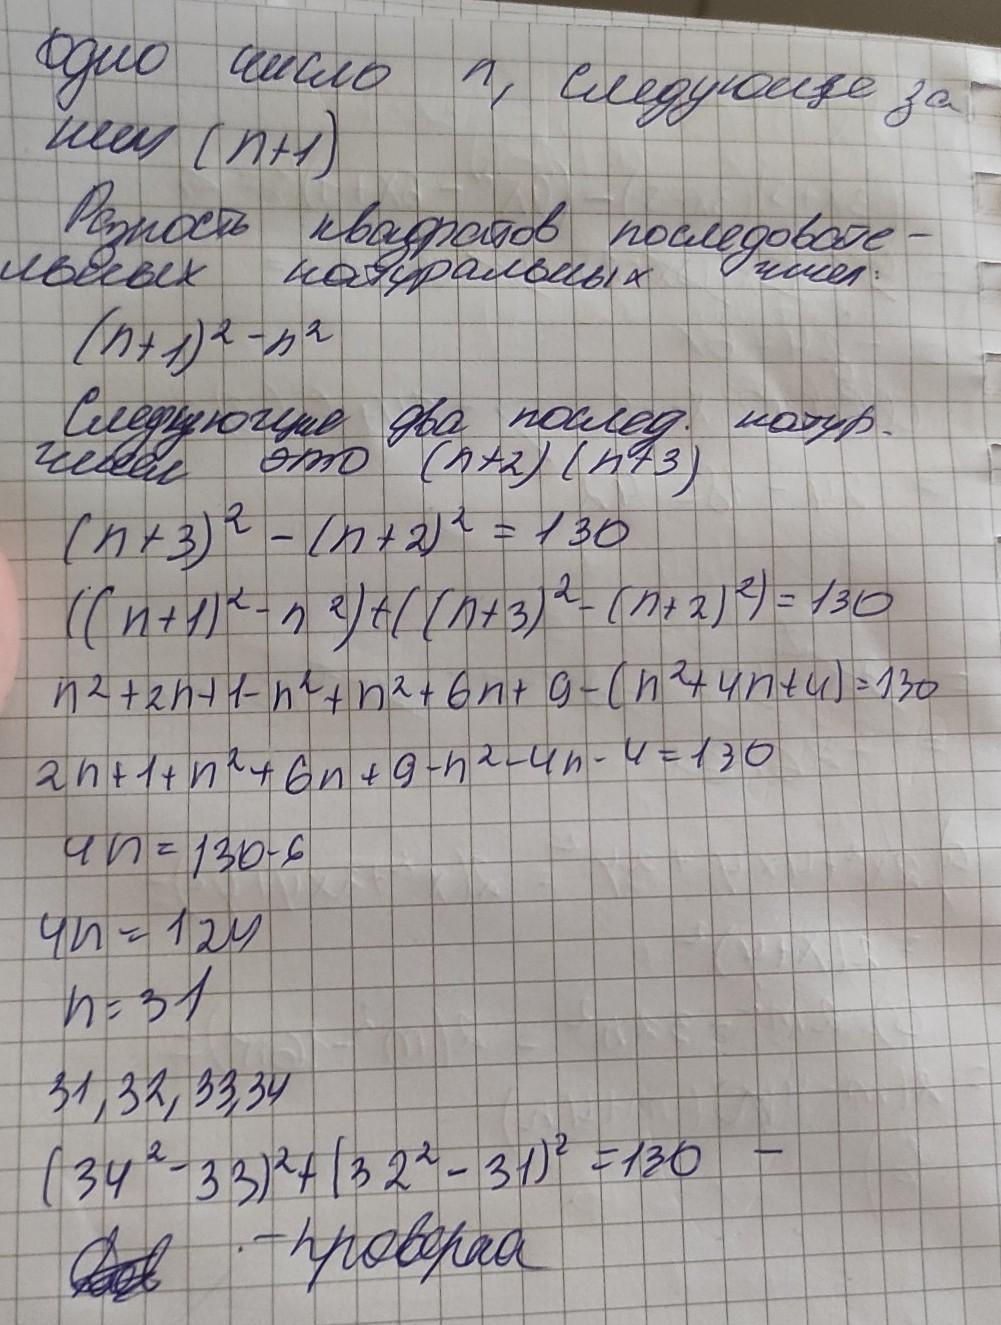 одно число n, следующее за
ним (n+1)
Разность квадратов последовате-
льных натуральных чисел:
(n+1)² - n²
Следующие два послед. натур.
числа это (n+2) (n+3)
(n+3)² - (n+2)² = 130
((n+1)² - n²)+((n+3)² - (n+2)²) = 130
n²+2n+1-n²+n²+6n+9-(n²+4n+4)=130
2n+1+n²+6n+9-n²-4n-4=130
4n=130-6
4n=124
n=31
31, 32, 33, 34
(34² - 33)² + (32² - 31)² = 130 -
- проверка